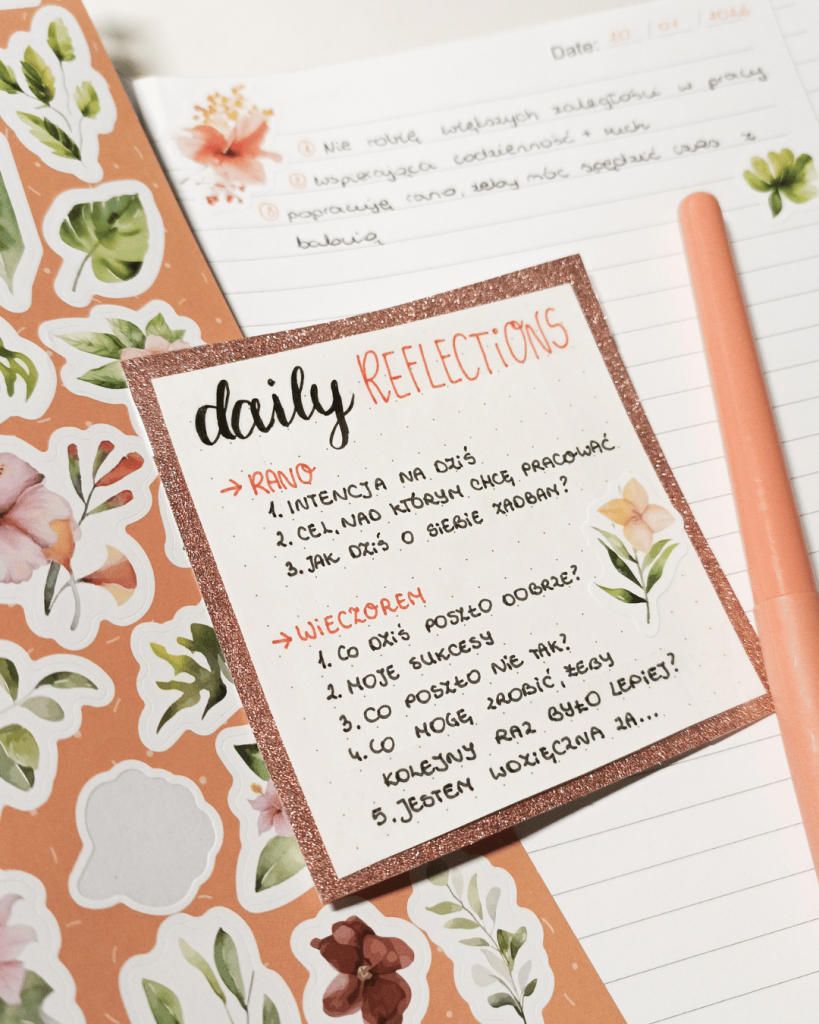 Date: 20 / 01 / 2026
① Nie robię większych zaległości w pracy
② wspierająca codzienność + ruch
③ popracuję rano, żeby móc spędzić czas z
babcią
daily REFLECTIONS
→ RANO
1. INTENCJA NA DZIŚ
2. CEL, NAD KTÓRYM CHCĘ PRACOWAĆ
3. JAK DZIŚ O SIEBIE ZADBAM?
→ WIECZOREM
1. CO DZIŚ POSZŁO DOBRZE?
2. MOJE SUKCESY
3. CO POSZŁO NIE TAK?
4. CO MOGĘ ZROBIĆ, ŻEBY
KOLEJNY RAZ BYŁO LEPIEJ?
5. JESTEM WDZIĘCZNA ZA...